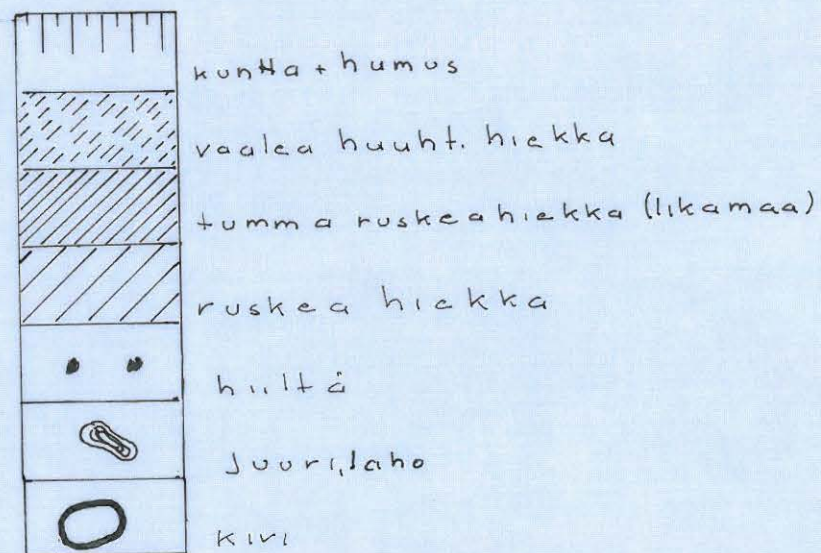 kuntta + humus
vaalea huuht. hiekka
tumma ruskeahiekka (likamaa)
ruskea hiekka
hiiltä
Juuri, laho
kivi